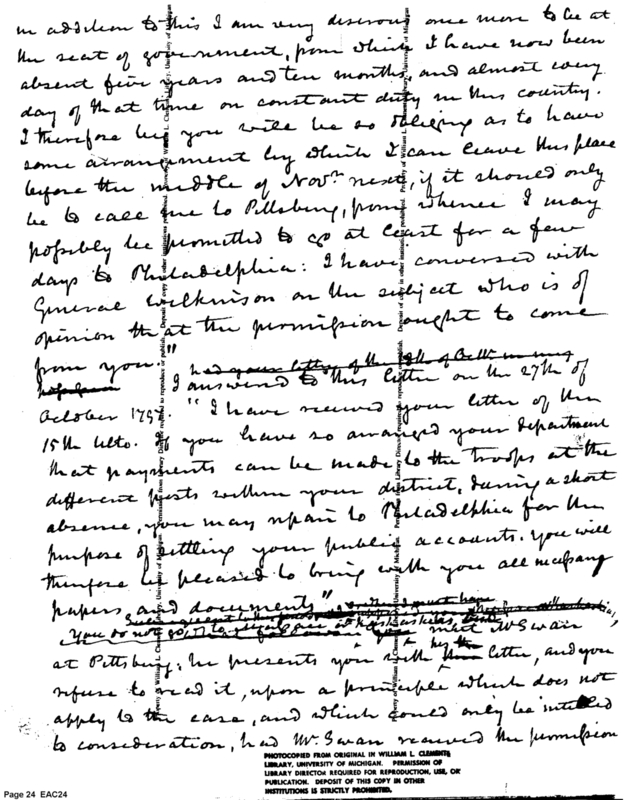 in addition to this I am very desirous once more to be at
the seat of government, from which I have now been
absent five years and ten months, and almost every
day of that time on constant duty in this country.
I therefore beg you will be so obliging as to have
some arrangement by which I can leave this place
before the middle of Novr. next, if it should only
be to call me to Pittsburg, from whence I may
possibly be permitted to go at least for a few
days to Philadelphia: I have conversed with
General Wilkinson on the subject who is of
opinion that the permission ought to come
from you."
had your letter of the
I answered to this letter on the 27th of
October 1797. "I have received your letter of the
15th Ulto. If you have so arranged your department
that payments can be made to the troops at the
different posts within your district, during a short
absence, you may repair to Philadelphia for the
purpose of settling your public accounts. You will
therefore be pleased to bring with you all necessary
papers and documents"
You do not
meet Mr Swan
at Pittsburg: he presents you with his letter, and you
refuse to read it, upon a principle which does not
apply to the case, and which could only be intitled
to consideration, had Mr. Swan received the permission
PHOTOCOPIED FROM ORIGINAL IN WILLIAM L. CLEMENTS
LIBRARY, UNIVERSITY OF MICHIGAN. PERMISSION OF
LIBRARY DIRECTOR REQUIRED FOR REPRODUCTION, USE, OR
PUBLICATION. DEPOSIT OF THIS COPY IN OTHER
INSTITUTIONS IS STRICTLY PROHIBITED.
Page 24 EAC24